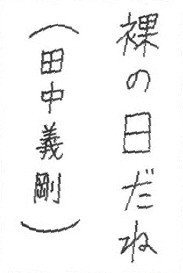 裸の日だね
(田中義剛)